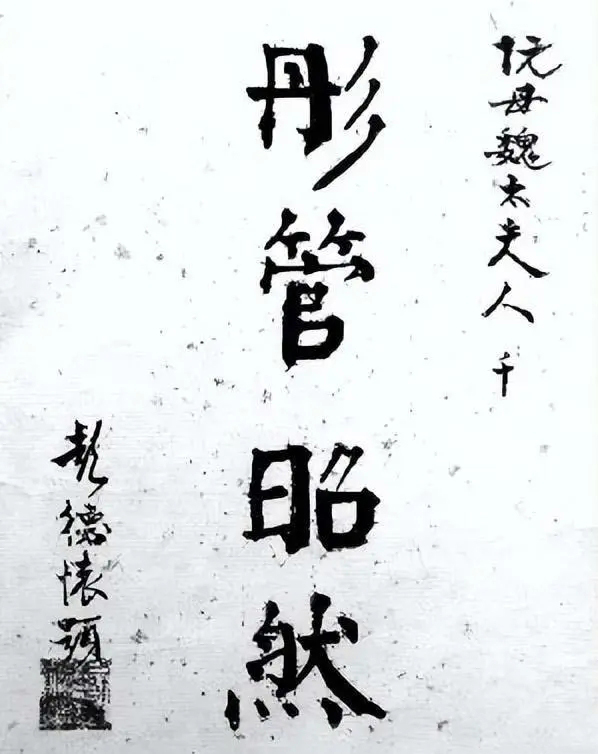 阮母魏太夫人 千
彤管昭然
彭德怀題